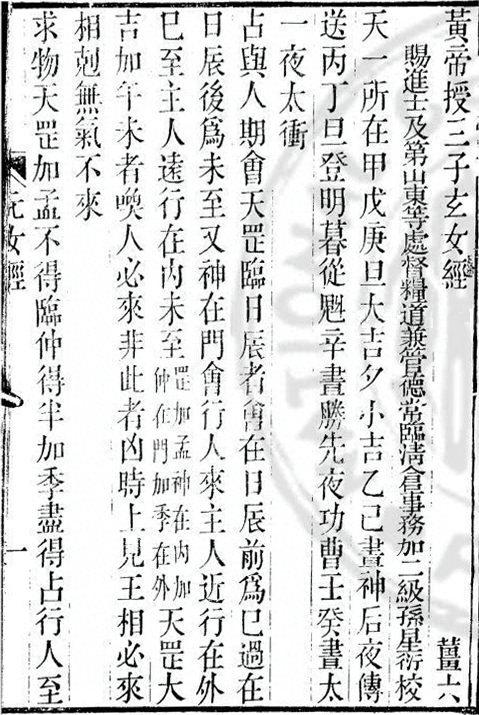 黃帝授三子玄女經
薑六
賜進士及第山東等處督糧道兼管德常臨淸倉事務加二級孫星衍校
天一所在甲戊庚旦大吉夕小吉乙己晝神后夜傳
送丙丁旦登明暮從魁辛晝勝先夜功曹壬癸晝太
一夜太衝
占與人期會天罡臨日辰者會在日辰前爲已過在
日辰後爲未至又神在門會行人來主人近行在外
巳至主人遠行在内未至罡加孟神在内加仲在門加季在外天罡大
吉加午未者喚人必來非此者凶時上見王相必來
相剋無氣不來
求物天罡加孟不得臨仲得半加季盡得占行人至
元女經
一